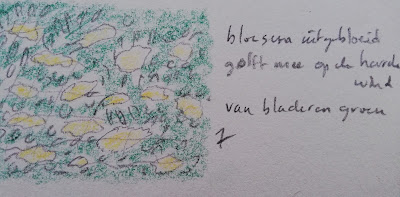 bloesem uitgebloeid
golft mee op de harde
wind
van bladeren groen